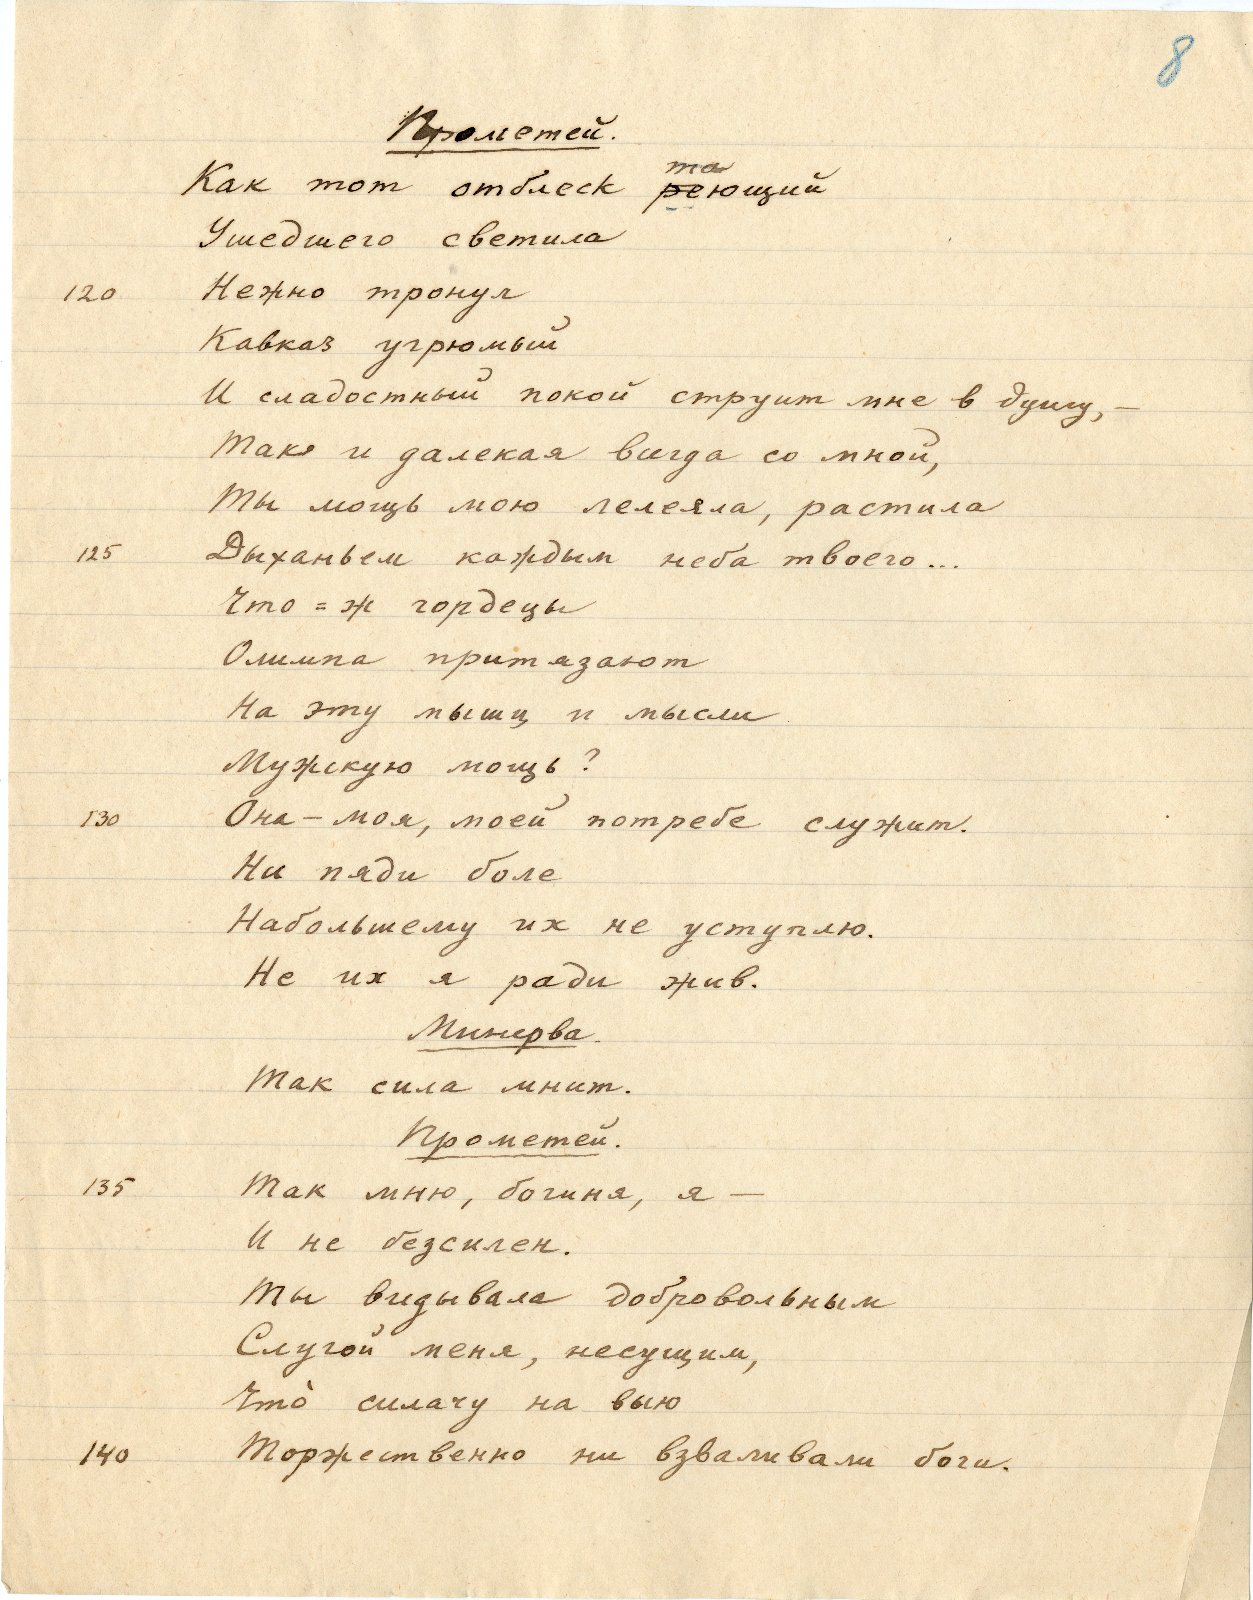 8
Прометей.
Как тот отблеск реющий
та
Ушедшего светила
120 Нежно тронул
Кавказ угрюмый
И сладостный покой струит мне в душу, —
Так и далекая всегда со мной,
Ты мощь мою лелеяла, растила
125 Дыханьем каждым неба твоего...
Что = ж гордецы
Олимпа притязают
На эту мышц и мысли
Мужскую мощь?
130 Она – моя, моей потребе служит.
Ни пяди боле
Набольшему их не уступлю.
Не их я ради жив.
Минерва.
Так сила мнит.
Прометей.
135 Так мню, богиня, я —
И не безсилен.
Ты видывала добровольным
Слугой меня, несущим,
Что̀ силачу на выю
140 Торжественно ни взваливали боги.